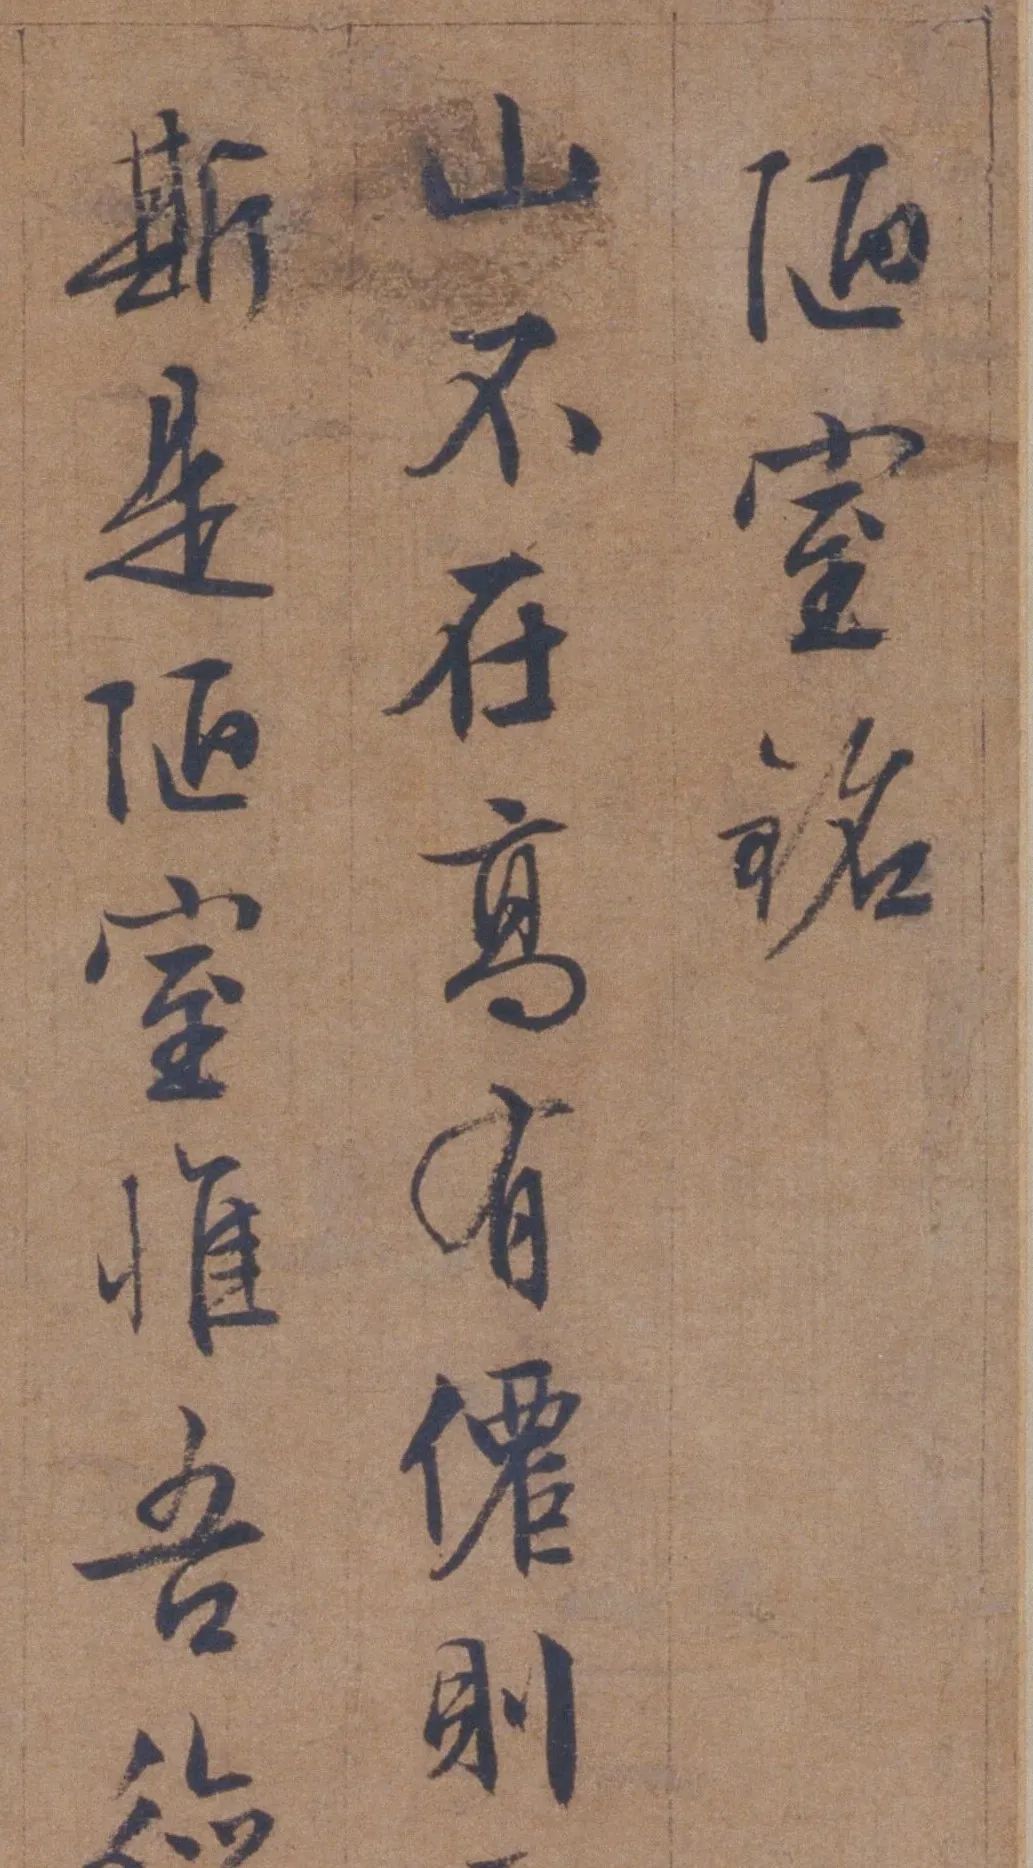 陋室銘
山不在高有僊則
斯是陋室惟吾德